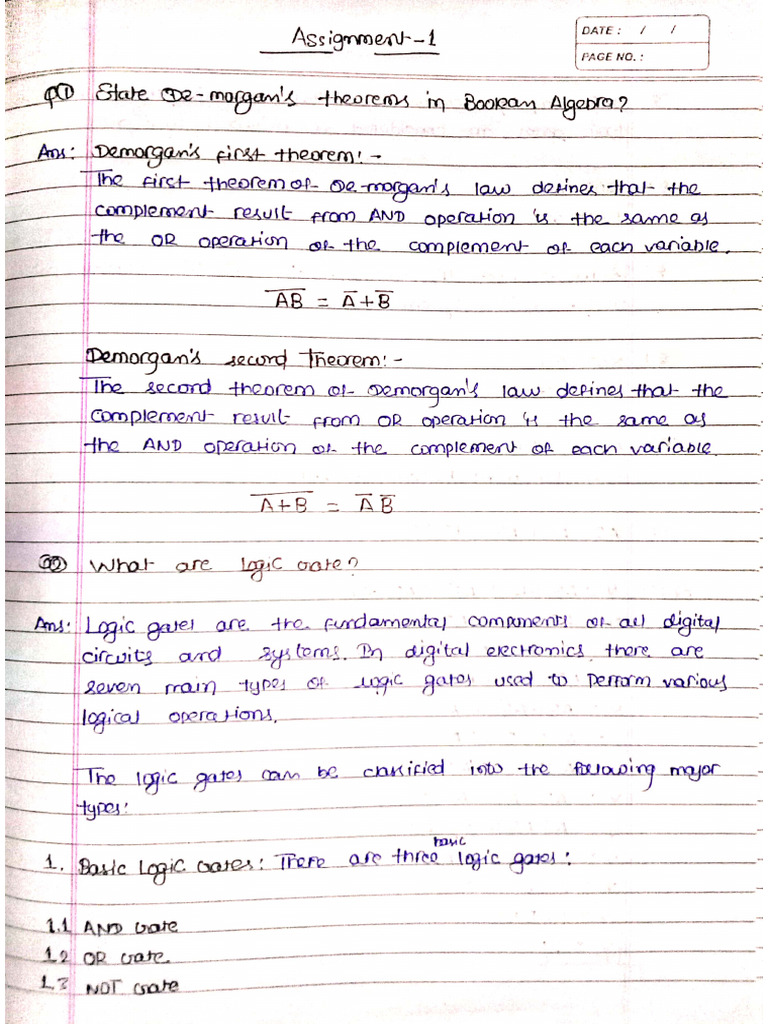 Assignment-1
DATE : / /
PAGE NO. :
Q1) State De-morgan's theorems in Boolean Algebra?
Ans: Demorgan's first theorem:-
The first theorem of De-morgan's law defines that the
complement result from AND operation is the same as
the OR operation of the complement of each variable.
A̅B̅ = A̅+B̅
Demorgan's second Theorem:-
The second theorem of Demorgan's law defines that the
complement result from OR operation is the same as
the AND operation of the complement of each variable.
A̅+̅B̅ = A̅ B̅
Q2) What are logic Gate?
Ans: Logic gates are the fundamental components of all digital
circuits and systems. In digital electronics, there are
seven main types of logic gates used to perform various
logical operations.
The logic gates can be classified into the following major
types:
basic
1. Basic Logic Gates: There are three logic gates:
1.1 AND Gate
1.2 OR Gate.
1.3 NOT Gate